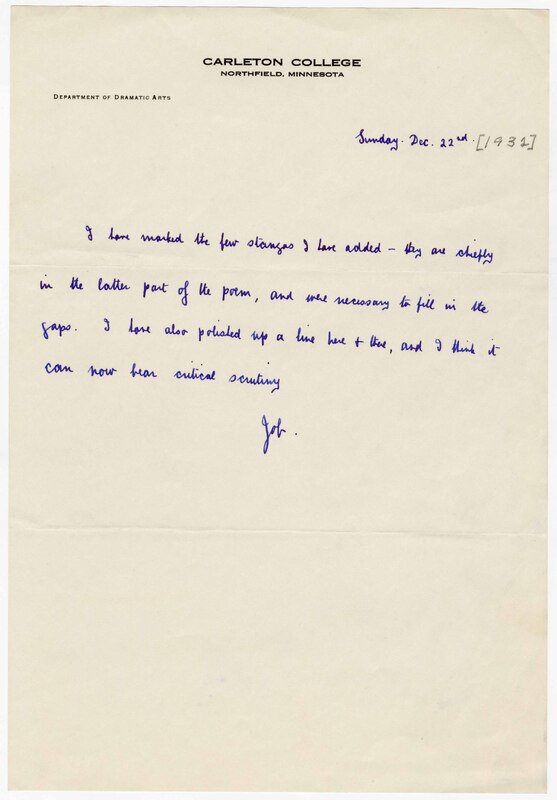 CARLETON COLLEGE
NORTHFIELD, MINNESOTA
DEPARTMENT OF DRAMATIC ARTS
Sunday. Dec. 22nd. [1932]
I have marked the few stanzas I have added – they are chiefly
in the latter part of the poem, and were necessary to fill in the
gaps. I have also polished up a line here & there, and I think it
can now bear critical scrutiny
Job.